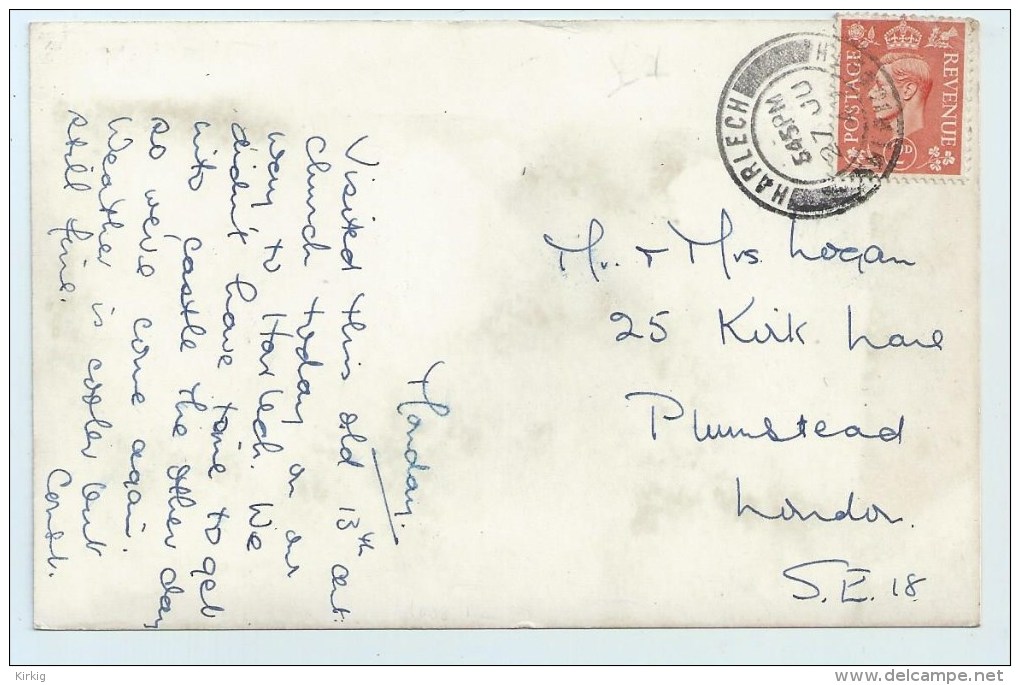 Monday.
Visited this old 13th cent.
church today on our
way to Harlech. We
didn't have time to get
into castle the other day
so we've come again.
Weather is cooler but
still fine. Const.
HARLECH
545PM
27 JU
POSTAGE
REVENUE
Mr. + Mrs. Logan
25 Kirk Lane
Plumstead
London.
S.E. 18.
Kirkig
delcampe.net